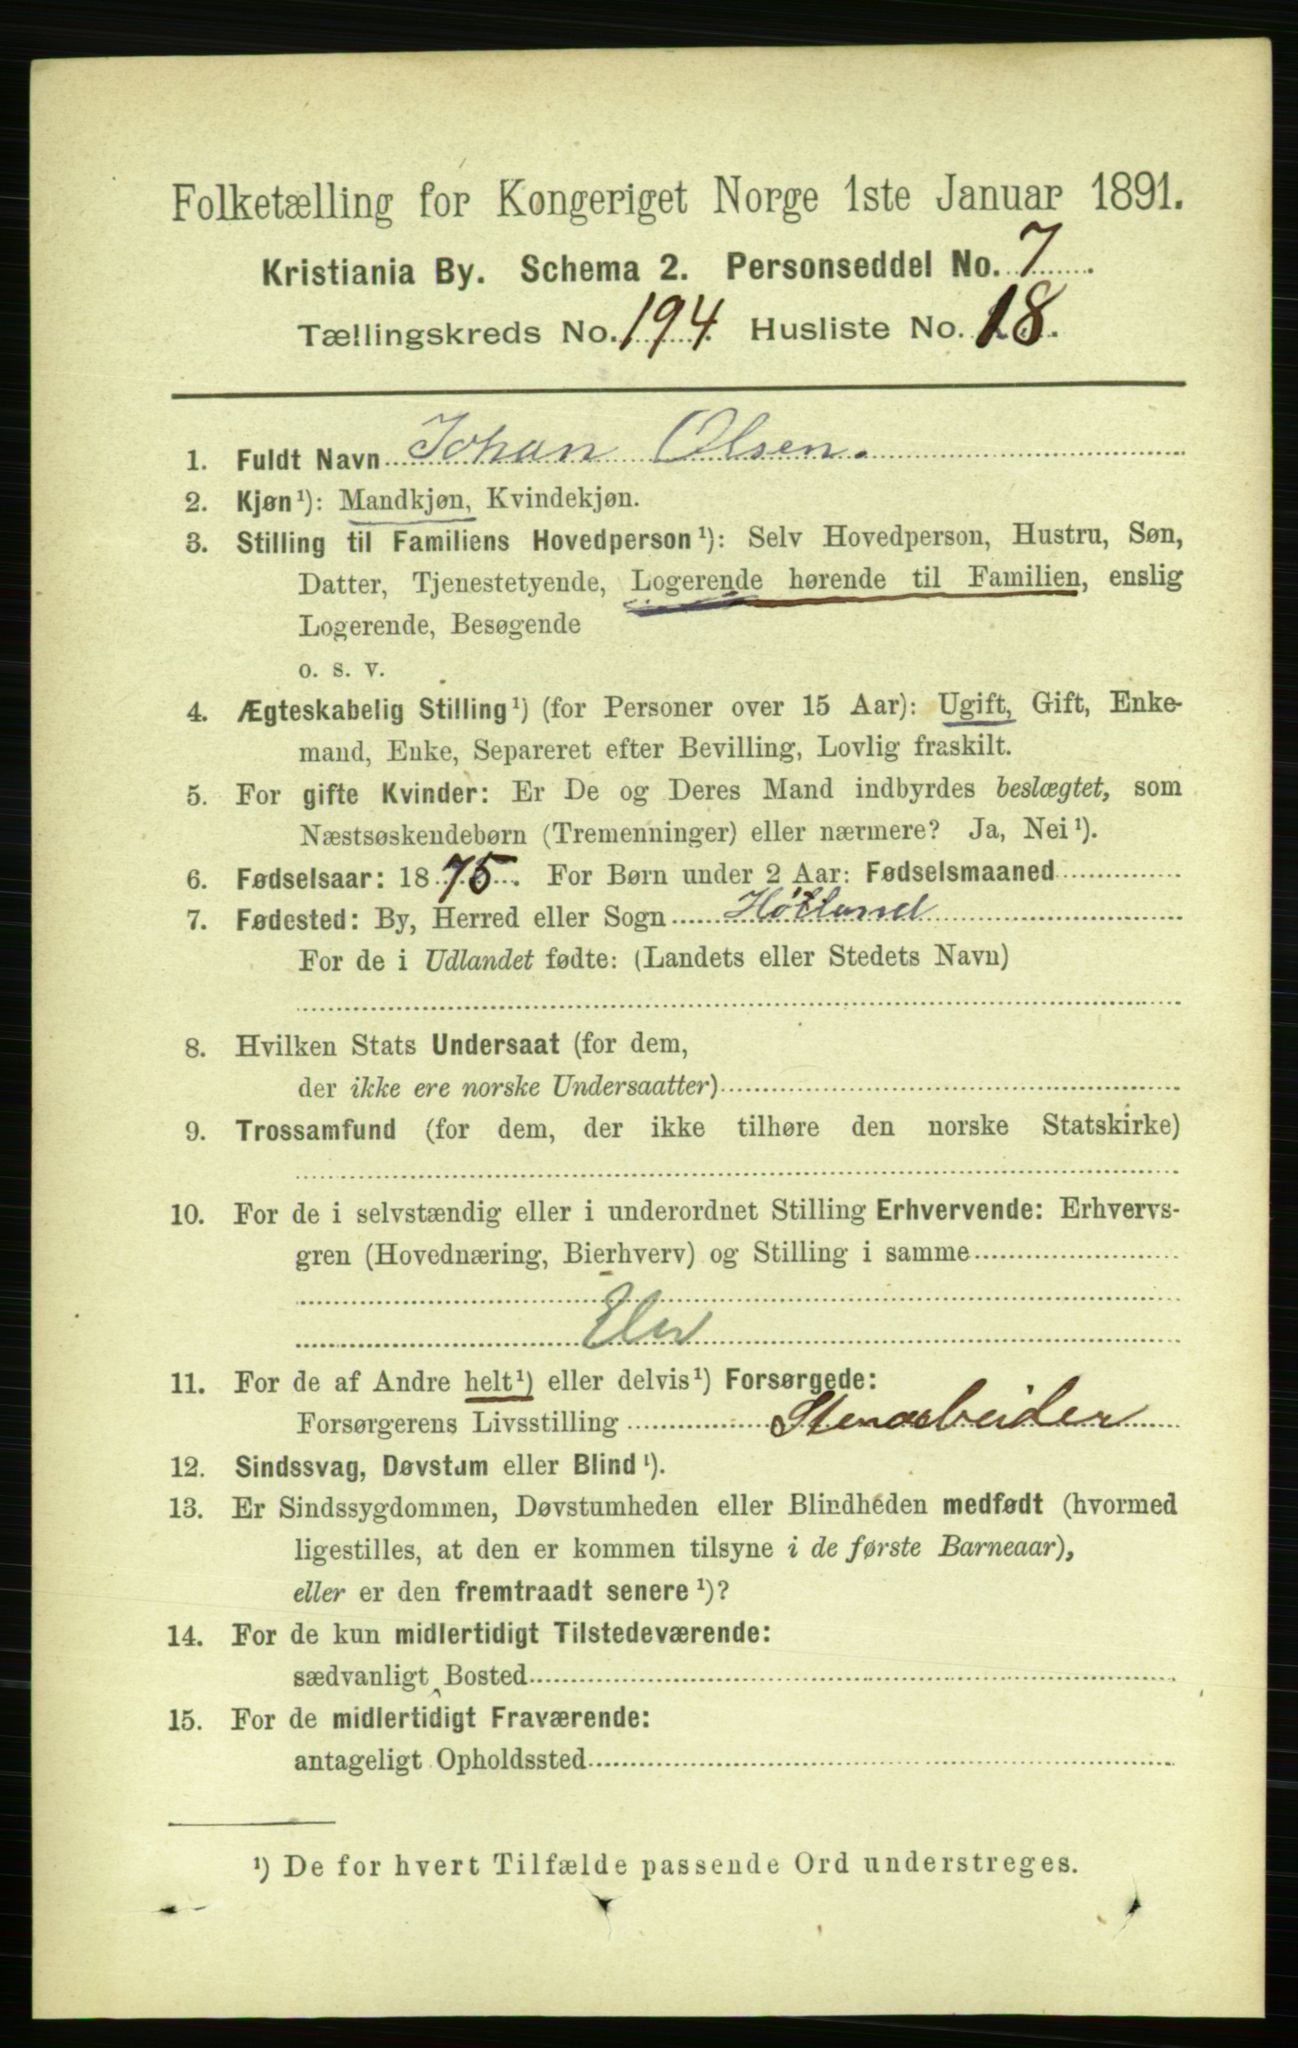 Folketælling for Kongeriget Norge 1ste Januar 1891.
Kristiania By. Schema 2. Personseddel No. 7
Tællingskreds No. 194 Husliste No. 18.
1. Fuldt Navn Johan Olsen.
2. Kjøn¹): Mandkjøn, Kvindekjøn.
3. Stilling til Familiens Hovedperson¹): Selv Hovedperson, Hustru, Søn,
Datter, Tjenestetyende, Logerende hørende til Familien, enslig
Logerende, Besøgende
o. s. v.
4. Ægteskabelig Stilling¹) (for Personer over 15 Aar): Ugift, Gift, Enke-
mand, Enke, Separeret efter Bevilling, Lovlig fraskilt.
5. For gifte Kvinder: Er De og Deres Mand indbyrdes beslægtet, som
Næstsøskendebørn (Tremenninger) eller nærmere? Ja, Nei¹).
6. Fødselsaar: 1875. For Børn under 2 Aar: Fødselsmaaned
7. Fødested: By, Herred eller Sogn Høtland
For de i Udlandet fødte: (Landets eller Stedets Navn)
8. Hvilken Stats Undersaat (for dem,
der ikke ere norske Undersaatter)
9. Trossamfund (for dem, der ikke tilhøre den norske Statskirke)
10. For de i selvstændig eller i underordnet Stilling Erhvervende: Erhvervs-
gren (Hovednæring, Bierhverv) og Stilling i samme
Elev
11. For de af Andre helt¹) eller delvis¹) Forsørgede:
Forsørgerens Livsstilling Stenarbeider
12. Sindssvag, Døvstum eller Blind¹).
13. Er Sindssygdommen, Døvstumheden eller Blindheden medfødt (hvormed
ligestilles, at den er kommen tilsyne i de første Barneaar),
eller er den fremtraadt senere¹)?
14. For de kun midlertidigt Tilstedeværende:
sædvanligt Bosted
15. For de midlertidigt Fraværende:
antageligt Opholdssted
¹) De for hvert Tilfælde passende Ord understreges.